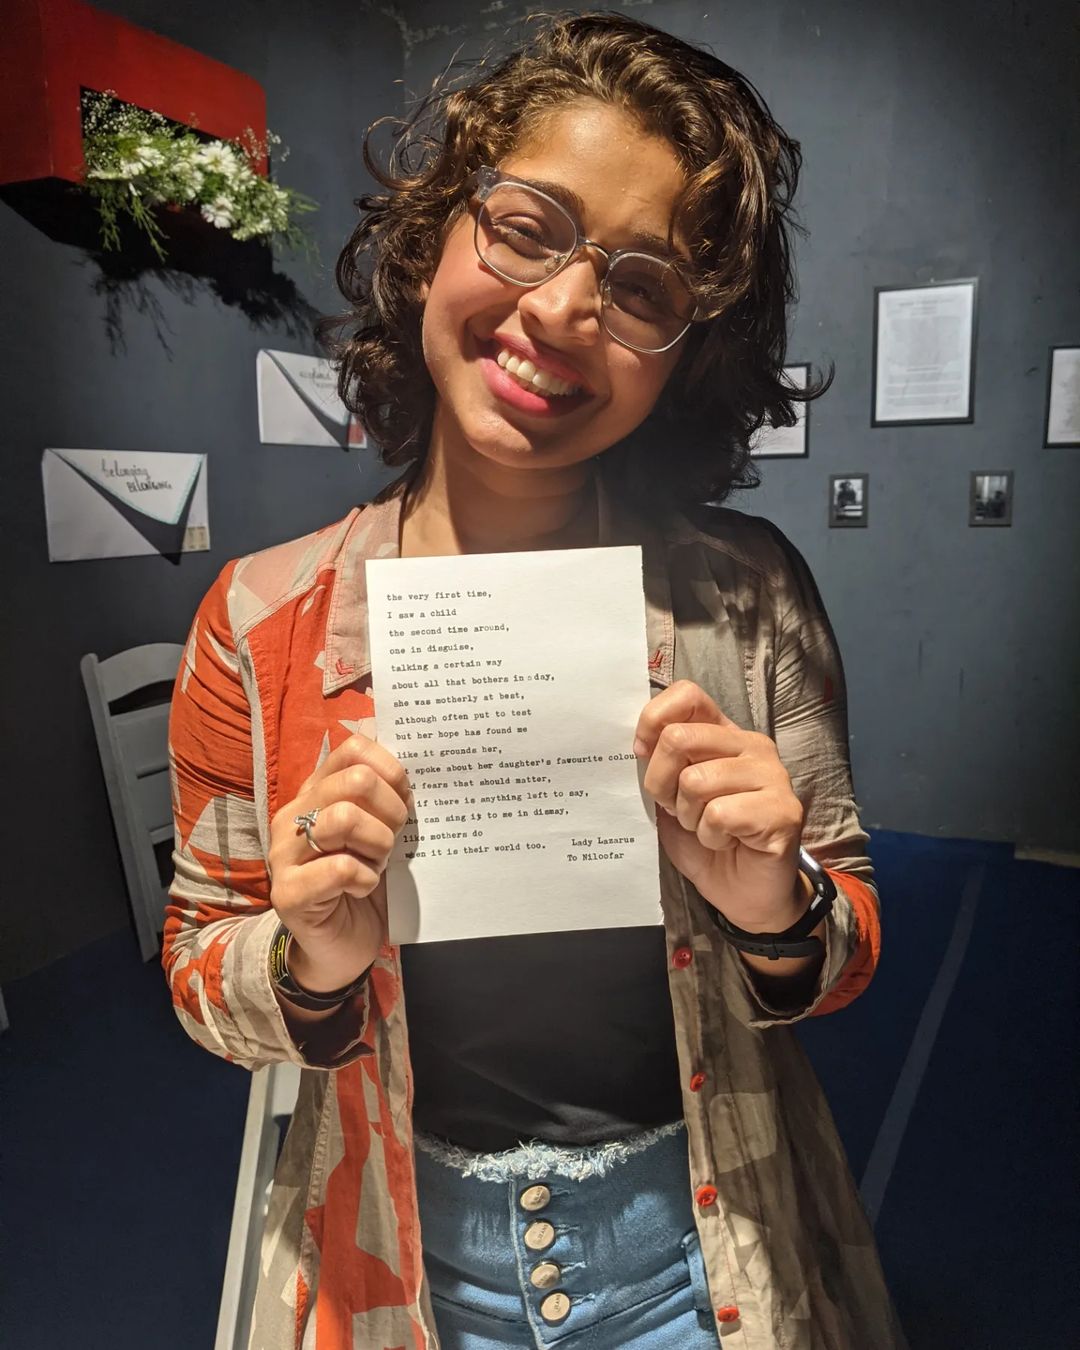 belonging
BELONGING
the very first time,
I saw a child
the second time around,
one in disguise,
talking a certain way
about all that bothers in a day,
she was motherly at best,
although often put to test
but her hope has found me
like it grounds her,
spoke about her daughter's favourite colou
fears that should matter,
if there is anything left to say,
she can sing it to me in dismay,
like mothers do
when it is their world too.
Lady Lazarus
To Niloofar